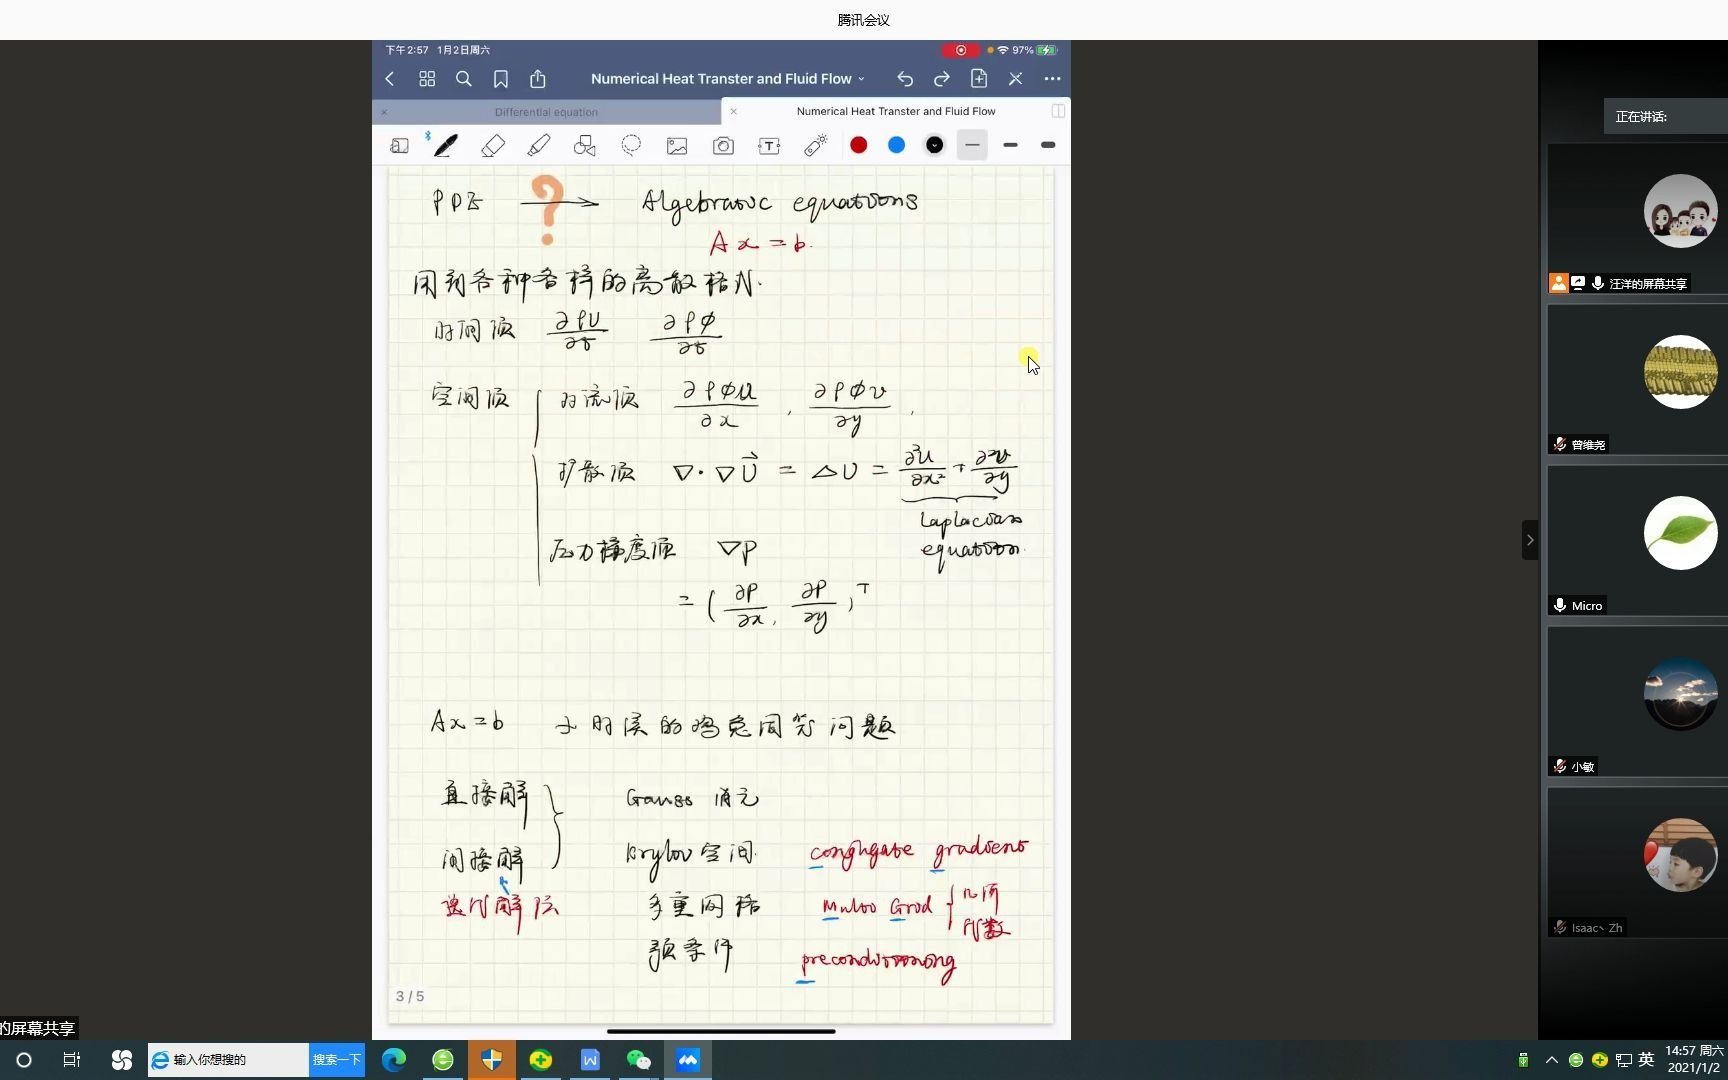 腾讯会议
下午2:57 1月2日周六
97%
Numerical Heat Transter and Fluid Flow
Differential equation
Numerical Heat Transter and Fluid Flow
PDE ? → Algebraic equations
Ax = b.
用到各种各样的离散格式.
时间项 ∂ρU/∂t ∂ρφ/∂t
空间项 { 对流项 ∂ρφu/∂x , ∂ρφv/∂y ,
扩散项 ∇·∇U⃗ = △U = ∂²u/∂x² + ∂²v/∂y
Laplacian
equation.
压力梯度项 ∇P
= ( ∂P/∂x, ∂P/∂y )ᵀ
Ax = b 小时候的鸡兔同笼问题
直接解 } Gauss 消元
间接解 Krylov 空间. conjugate gradient
迭代解法 多重网格 Multi Grid { 几何
代数
预条件 preconditioning
3 / 5
正在讲话:
汪洋的屏幕共享
曾维尧
Micro
小敏
Isaac、Zh
的屏幕共享
输入你想搜的 搜索一下
英
14:57 周六
2021/1/2